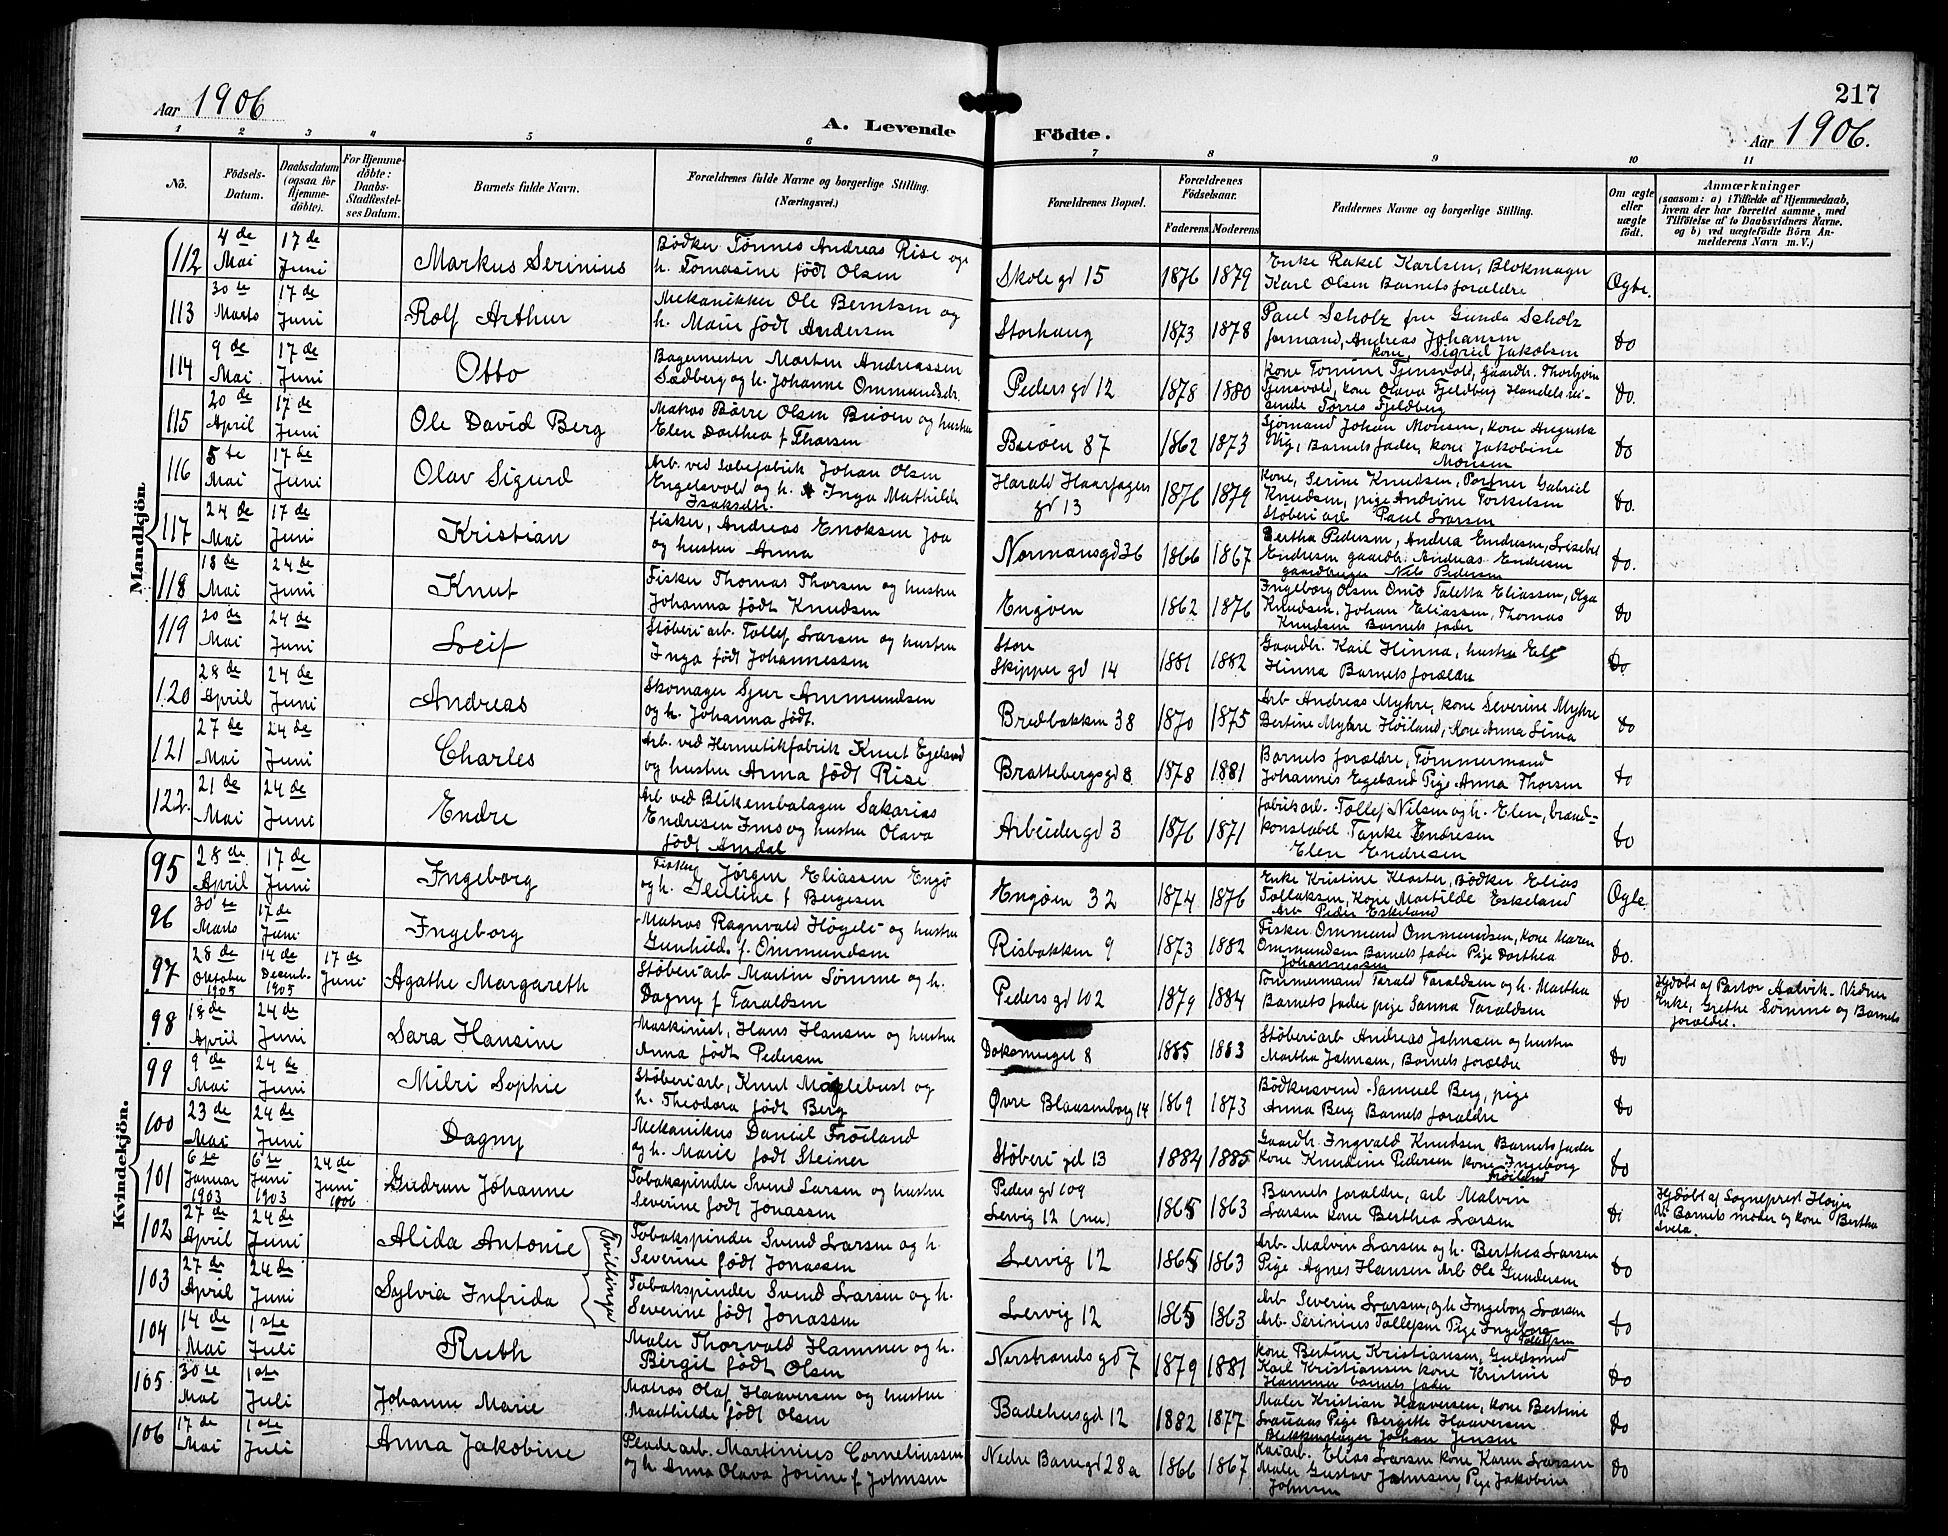 217
Aar 1906
A. Levende Födte.
Aar 1906.
1 2 3 4 5 6 7 8 9 10 11
No.
Födsels-Datum.
Daabsdatum (ogsaa for Hjemme-döbte).
For Hjemme-döbte: Daabs-Stadfæstel-ses Datum.
Barnets fulde Navn.
Forældrenes fulde Navne og borgerlige Stilling. (Næringsvei.)
Forældrenes Bopæl.
Forældrenes Födselsaar.
Faderens Moderens
Faddernes Navne og borgerlige Stilling.
Om ægte eller uægte födt.
Anmærkninger
(saasom: a) i Tilfælde af Hjemmedaab, hvem der har forrettet samme, med Tilföielse af to Daabsvidners Navne. og b) ved uægtefödte Börn An-melderens Navn m. V.)
Mandkjön
112 4de Mai 17de Juni Markus Serinius
Bödker Tönnes Andreas Rise og
h. Tomasine födt Olsen
Skole gd 15 1876 1879
Enke Rakel Karlsen, Blokmager
Karl Olsen Barnets forældre
Ægte.
113 30te Marts 17de Juni Rolf Arthur
Mekanikker Ole Berntsen og
h. Marie födt Andersen
Storhaug 1873 1878
Paul Scholz fru Gunda Scholz
formand, Andreas Johansen
kone Sigrid Jakobsen
do
114 9de Mai 17de Juni Otto
Bagermester Morten Andreassen
Sædberg og h. Johanne Ommundsdr.
Peders gd 12 1878 1880
Tjensvold, kone Olava Fjeldberg Handelsrei-
sende Törres Fjeldberg
do.
115 20de April 17de Juni Ole David Berg
Matros Börre Olsen Buöen og hustru
Elen Dorthea f Thorsen
Buöen 87 1862 1873
Sjömand Johan Monsen, kone Augusta
Vig, Barnets fader, kone Jakobine
Monsen
do
116 5te Mai 17de Juni Olav Sigurd
Arb. ved Sæbefabrik Johan Olsen
Engelsvold og h. Inga Mathilde
Isaksdtr.
Harald Haarfagers
gd 13 1876 1879
Kone, Serine Knudsen, Portner Gabriel
Knudsen, pige Andrine Torkelsen
Stöberiarb Paul Larsen
do.
117 24de Mai 17de Juni Kristian
fisker, Andreas Enoksen Joa
og hustru Anna
Normansgd 36 1866 1867
Bertha Pedersen, Andrea Endresen, Lisebet
Endresen gaardbr. Andreas Endresen
gaardbruger Nils Pedersen
do.
118 18de Mai 24de Juni Knut
Fisker Thomas Thorsen og hustru
Johanna födt Knudsen
Engöen 1862 1876
Ingeborg Olsen Omö Taletta Eliassen, Olga
Knudsen, Johan Eliassen, Thomas
Knudsen Barnets fader
do
119 20de Mai 24de Juni Leif
Stöberiarb. Tollef Larsen og hustru
Inga födt Johannessen
Store
Skipper gd 14 1881 1882
Gaardbr. Karl Hinna, hustru Eli
Hinna Barnets forældre
do.
120 28de April 24de Juni Andreas
Skomager Sjur Ammundsen
og h. Johanna födt.
Bredbakken 38 1870 1875
Arb Andreas Myhre, kone Severine Myhre
Bertine Myhre Höiland, kone Anna Lima
do
121 27de Mai 24de Juni Charles
Arb. ved Hermetikfabrik Knut Egeland
og hustru Anna födt Rise
Brattebergsgd 8 1878 1881
Barnets forældre, Tömmermand
Johannes Egeland Pige Anna Thorsen
do
122. 21de Mai 24de Juni Endre
Arb ved Blikemballagen Sakarias
Endresen Ims og hustru Olava
födt Amdal
Arbeidergd 3 1876 1871
fabrikarb. Tollef Nilsen og h. Elen, brand-
konstabel Tanke Endresen
Elen Endresen
do
Kvindekjön.
95 28de April 17de Juni Ingeborg
Fisker Jörgen Eliassen Engö
og h. f Bergesen
Engöen 32 1874 1876
Enke Kristine Kloster, Bödker Elias
Tollaksen, Kone Mathilde Eskeland
Arb Peder Eskeland
Ægte.
96 30te Marts 17de Juni Ingeborg
Matros Ragnvald Högeli og hustru
Gunhild f. Ommundsen
Risbakken 9 1873 1882
Fisker Ommund Ommundsen, kone Maren
Ommundsen Barnets fader Pige Dorthea
Johannessen
do.
97 28de Oktober 1905 14de Decemb. 1905 17de Juni Agathe Margareth
Stöberiarb Martin Sömme og h.
Dagny f Taraldsen
Peders gd 102 1879 1884
Tömmermand Tarald Taraldsen og h. Martha
Barnets fader pige Sanna Taraldsen
do
Hjdöbt af Pastor Aalvik. Vidner
Enke, Grethe Sömme og Barnets
forældre.
98 18de April 24de Juni Sara Hansine
Maskinist, Hans Hansen og hustru
Anna födt Pedersen
8 1885 1883
Stöberiarb Andreas Johnsen og hustru
Martha Johnsen, Barnets forældre
do
99 9de Mai 24de Juni Milri Sophie
Stöberiarb, Knut Möglebust og
h. Theodora födt Berg
Övre Blaasenborg 14 1869 1873
Bödkersvend Samuel Berg, pige
Anna Berg Barnets forældre
do
100 23de Mai 24de Juni Dagny
Mekanikus Daniel Fröiland
og h. Marie födt Steiner
Stöberi gd 13 1884 1885
Gaardb. Ingvald Knudsen Barnets fader
kone Knudine Pedersen kone Ingeborg
Fröiland
do
101 6te Januar 1903 6te Juni 1903 24de Juni 1906 Gudrun Johanne
Tobakspinder Svend Larsen og hustru
Severine födt Jonassen
Peders gd 109
Lervig 12 (nu) 1865 1863
Barnets forældre, arb Malvin
Larsen kone Berthea Larsen
do
Hjdöbt af Sogneprest Höyer
V. Barnets moder og kone Bertha
Svela.
102 27de April 24de Juni Alida Antonie
Tobakspinder Svend Larsen og h.
Severine födt Jonassen
Lervig 12 1865 1863
Arb. Malvin Larsen og h. Berthea Larsen
Pige Agnes Hansen Arb Ole Gundersen
do
Tvillinger
103 27de April 24de Juni Sylvia Infrida
Tobakspinder Svend Larsen og h.
Severine födt Jonassen
Lervig 12 1865 1863
Arb Severin Larsen, og h. Ingeborg Larsen
Arb. Serinius Tollefsen Pige Ingeborg
Tollefsen
do
104 14de Mai 1ste Juli Ruth
Maler Thorvald Hammer og h.
Bergit födt Olsen
Nerstrands gd 7 1879 1881
kone Bertine Kristiansen, Guldsmed
Karl Kristiansen kone Kristine
Hammer barnets fader
do
105 30te Mai 1ste Juli Johanne Marie
Matros Olaf Haaversen og hustru
Mathilde födt Olsen
Badehusgd 12 1882 1877
Maler Kristian Haaversen, kone Bertine
Pige Bergitte Haaversen
Blikkenslager Johan Jensen
do
106 17de Mai 1ste Juli Anna Jakobine
Pladearb. Martinius Corneliussen
og h Anna Olava Jorine f Johnsen
Nedre Banegd 28a 1866 1867
Kaiarb. Elias Larsen kone Karen Larsen
Maler Gustav Johnsen, Pige Jakobine
Johnsen
do